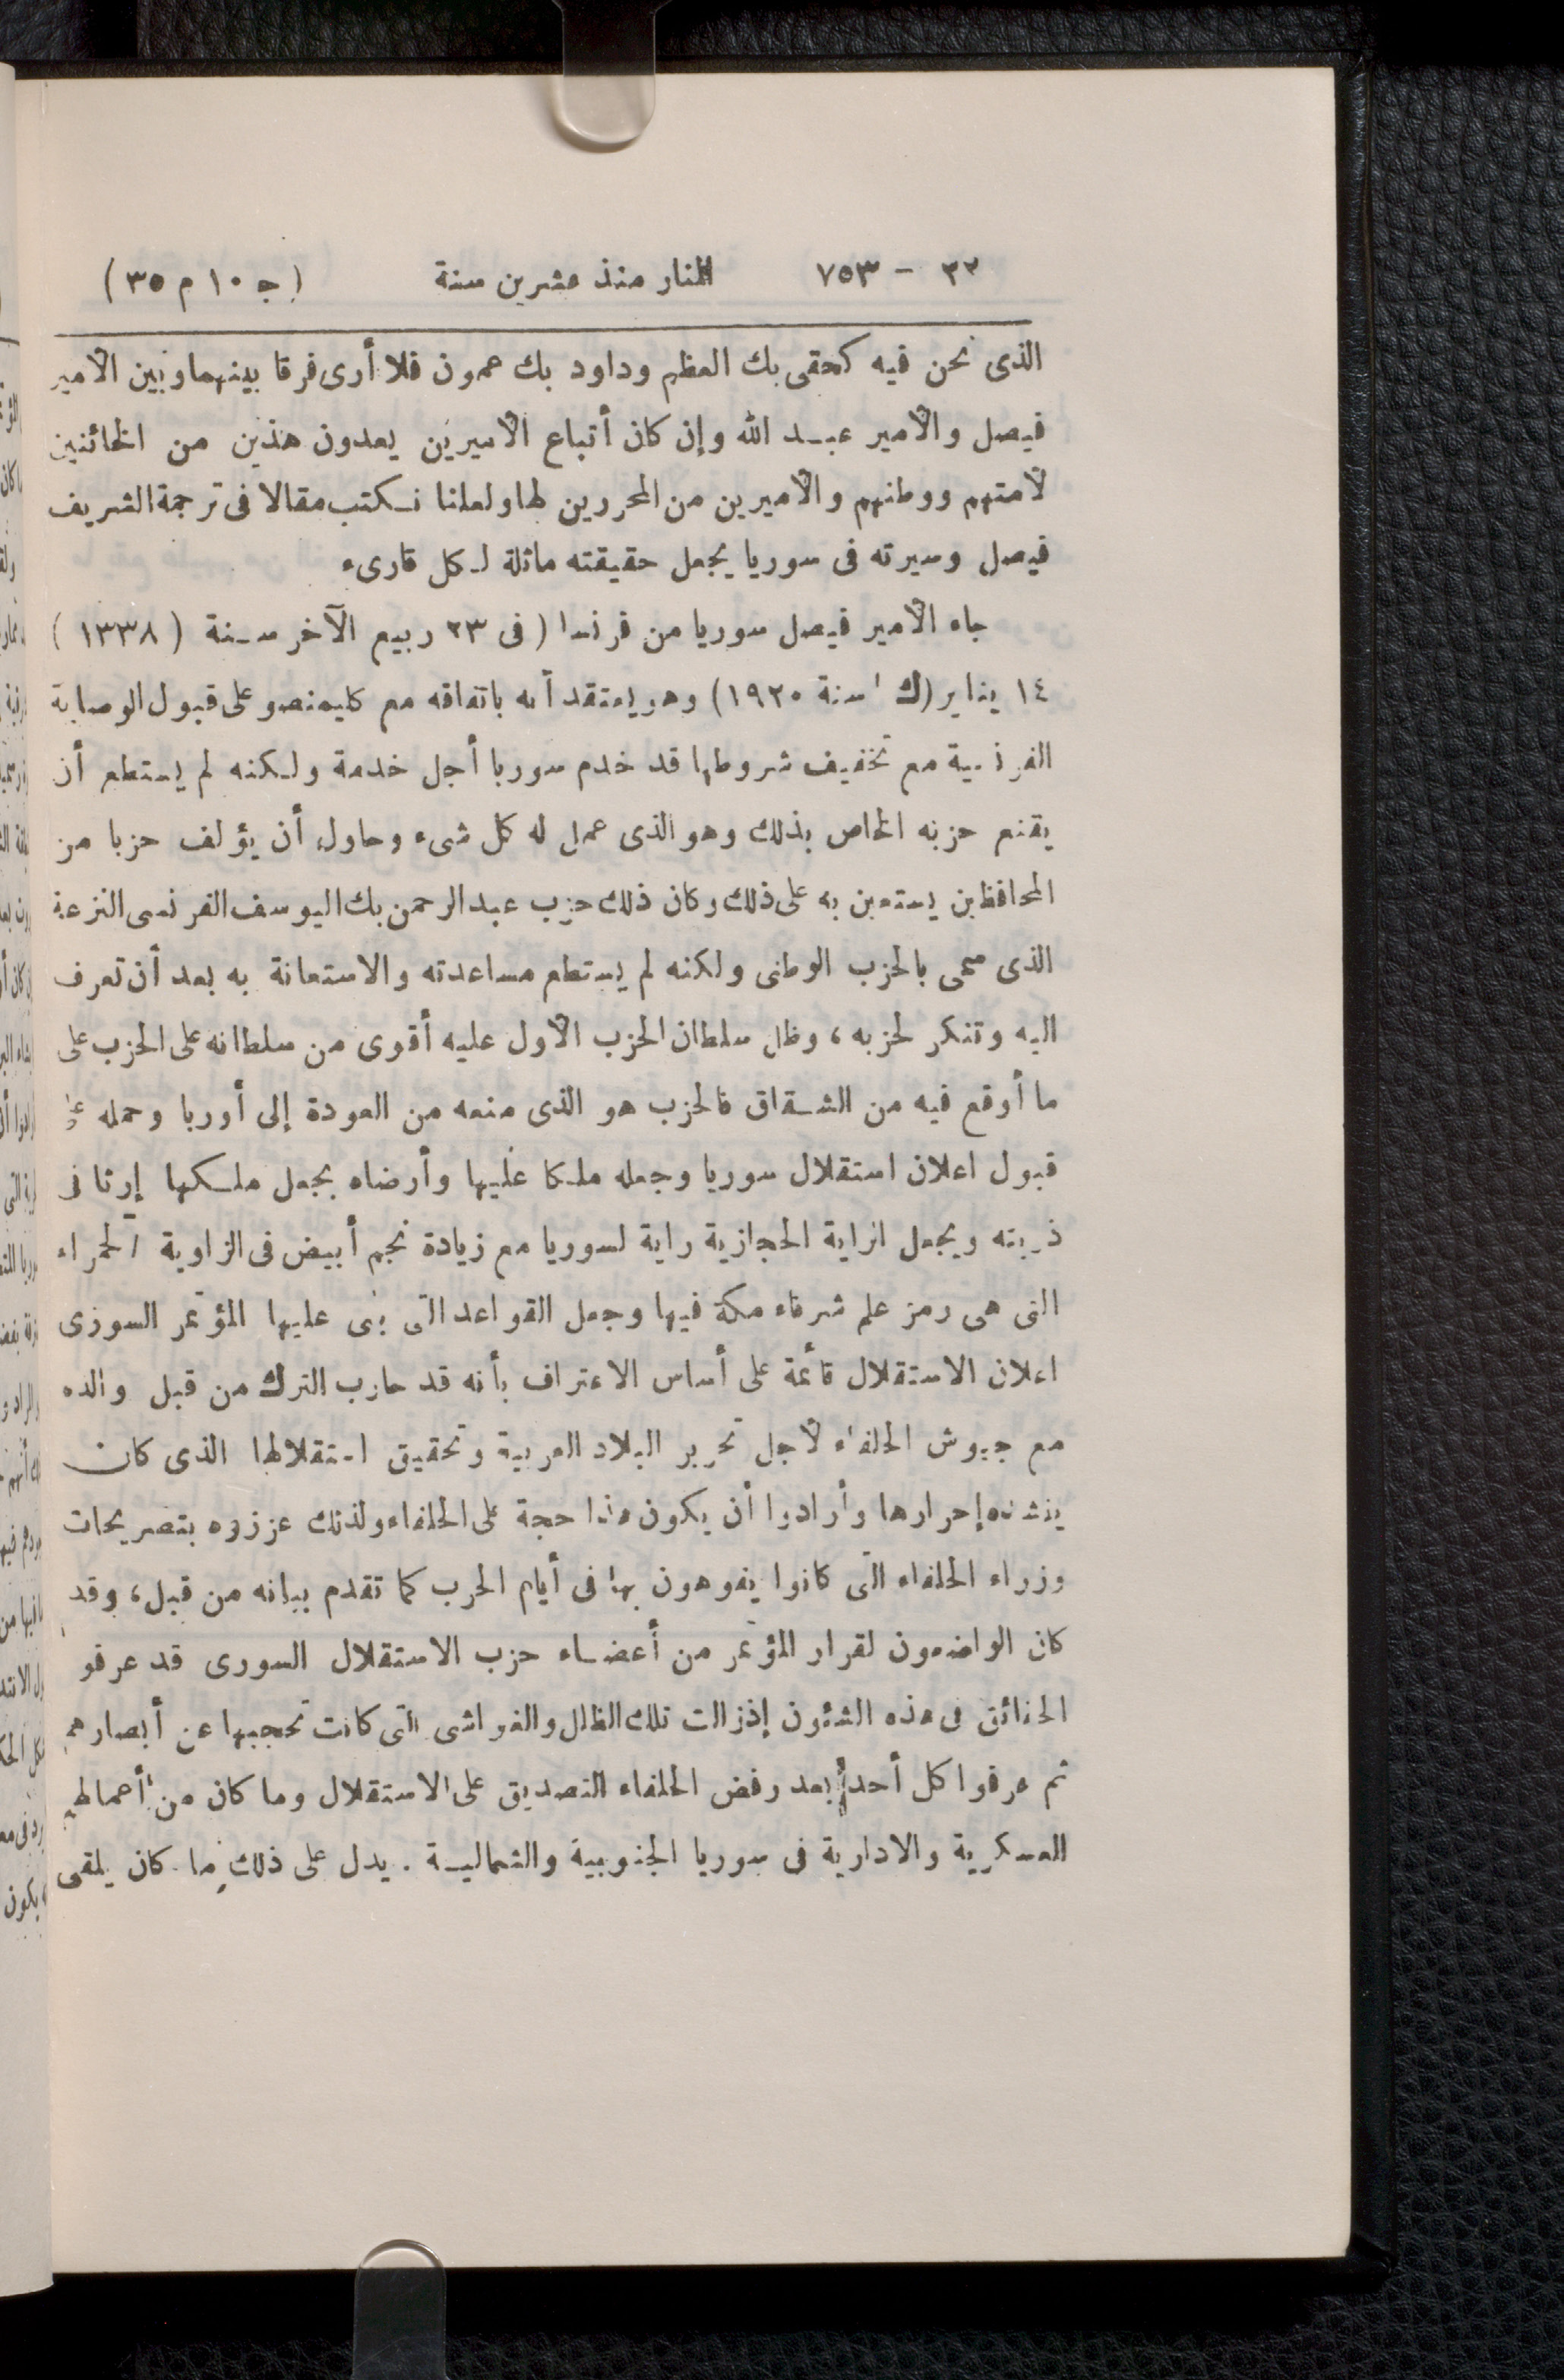 ٣٢ - ٧٥٣ المنار منذ عشرين سنة (ج ١٠ م ٣٥)
الذى نحن فيه كحقى بك العظم وداود بك عمون فلا أرى فرقا بينهما وبين الأمير
فيصل والأمير عبد الله وإن كان أتباع الأميرين يعدون هذين من الخائنين
لأمتهم ووطنهم والأميرين من المحررين لها ولعلنا نكتب مقالا فى ترجمة الشريف
فيصل وسيرته فى سوريا يجعل حقيقته ماثلة لكل قارىء
جاء الأمير فيصل سوريا من فرنسا (فى ٢٣ ربيع الآخر سنة (١٣٣٨)
١٤ يناير (ك ١ سنة ١٩٢٠) وهو يعتقد أنه باتفاقه مع كليمنصو على قبول الوصاية
الفرنسية مع تخفيف شروطها قد خدم سوريا أجل خدمة ولكنه لم يستطع أن
يقنع حزبه الخاص بذلك وهو الذى عمل له كل شىء وحاول أن يؤلف حزبا من
المحافظين يستعين به على ذلك وكان ذلك حزب عبد الرحمن بك اليوسف الفرنسى النزعة
الذى سمى بالحزب الوطنى ولكنه لم يستطع مساعدته والاستعانة به بعد أن تعرف
اليه وتنكر لحزبه، وظل سلطان الحزب الأول عليه أقوى من سلطانه على الحزب على
ما أوقع فيه من الشقاق فالحزب هو الذى منعه من العودة إلى أوربا وحمله على
قبول اعلان استقلال سوريا وجعله ملكا عليها وأرضاه بجعل ملكها إرثا فى
ذريته ويجعل الراية الحجازية راية لسوريا مع زيادة نجم أبيض فى الزاوية الحمراء
التى هى رمز علم شرفاء مكة فيها وجعل القواعد التى بنى عليها المؤتمر السورى
اعلان الاستقلال قائمة على أساس الاعتراف بأنه قد حارب الترك من قبل والده
مع جيوش الحلفاء لأجل تحرير البلاد العربية وتحقيق استقلالها الذى كان
ينشده إحرارها وأرادوا أن يكون هذا حجة على الحلفاء ولذلك عززوه بتصريحات
وزراء الحلفاء التى كانوا يفوهون بها فى أيام الحرب كما تقدم بيانه من قبل، وقد
كان الواضعون لقرار المؤتمر من أعضاء حزب الاستقلال السورى قد عرفو
الحقائق فى هذه الشؤون إذ زالت تلك الظلال والغواشى التى كانت تحجبها عن أبصارهم
ثم عرفوا كل أحد بعد رفض الحلفاء التصديق على الاستقلال وما كان من أعمالهم
العسكرية والادارية فى سوريا الجنوبية والشمالية . يدل على ذلك ما كان يلقى